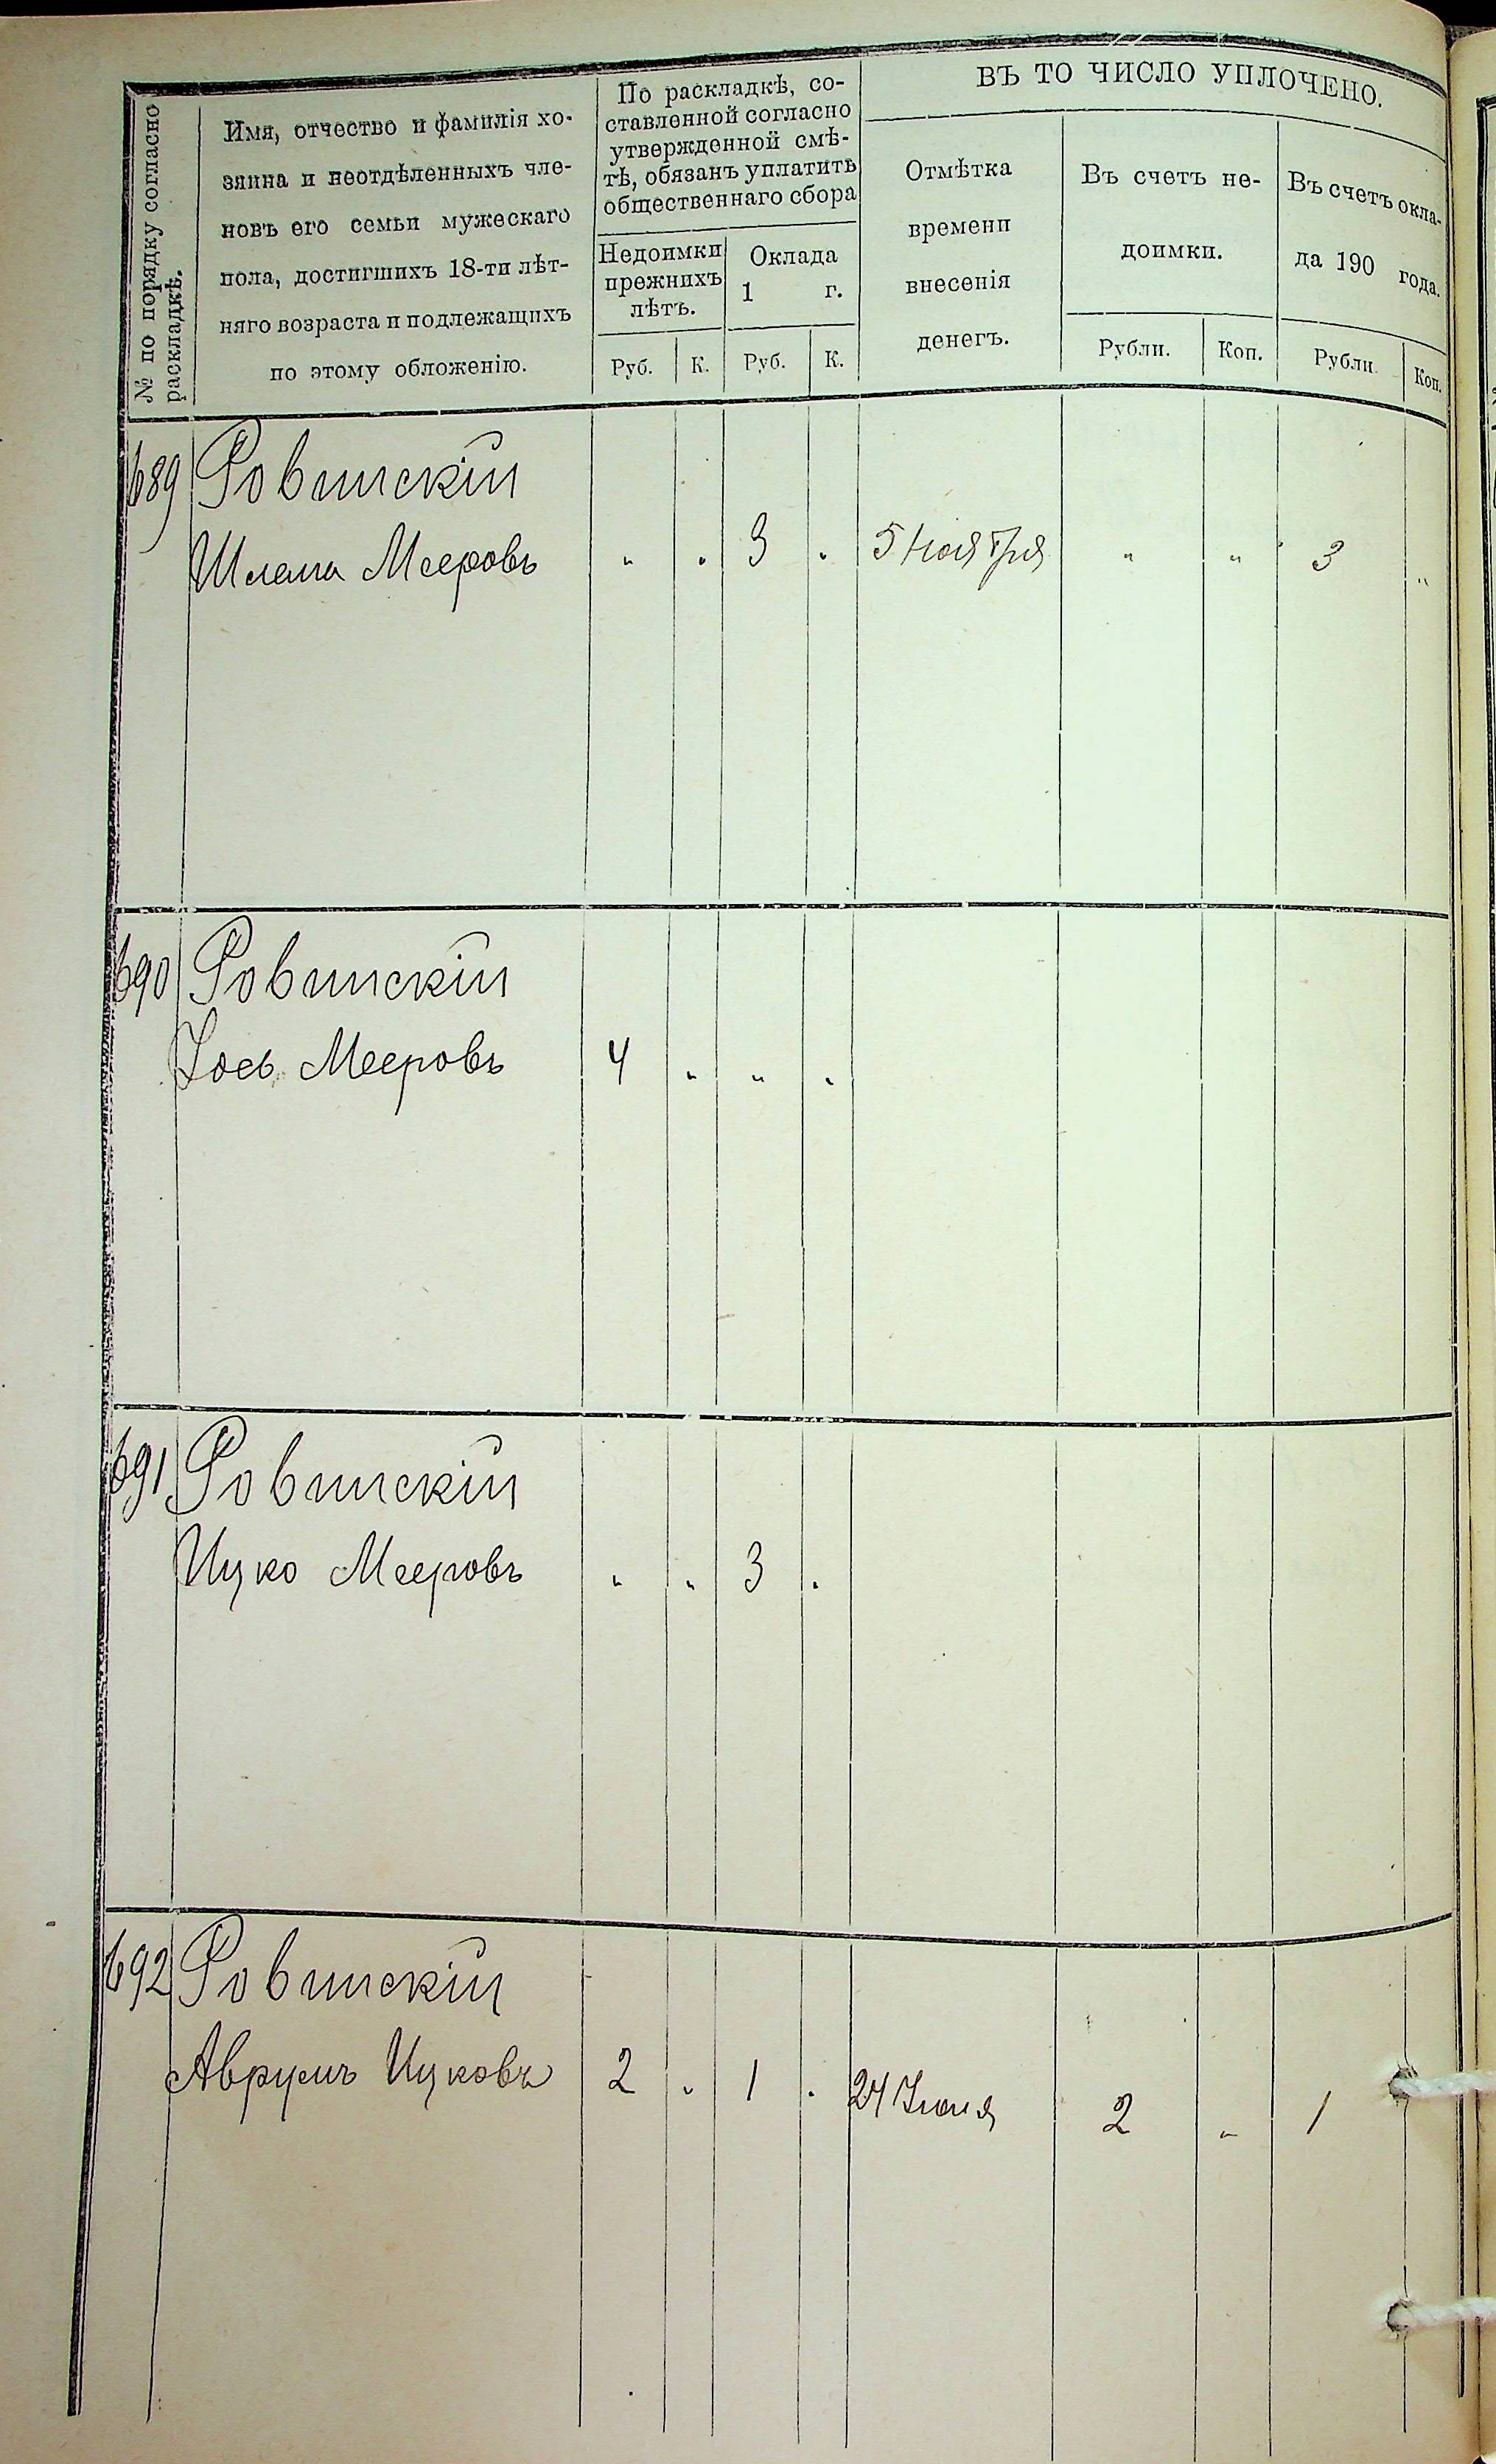 № по порядку согласно
раскладкѣ.
Имя, отчество и фамилія хо-
зяина и неотдѣленныхъ чле-
новъ его семьи мужескаго
пола, достигшихъ 18-ти лѣт-
няго возраста и подлежащихъ
по этому обложенію.
По раскладкѣ, со-
ставленной согласно
утвержденной смѣ-
тѣ, обязанъ уплатить
общественнаго сбора
Недоимки
прежнихъ
лѣтъ.
Оклада
1 г.
Руб. К. Руб. К.
ВЪ ТО ЧИСЛО УПЛОЧЕНО.
Отмѣтка
времени
внесенія
денегъ.
Въ счетъ не-
доимки.
Въ счетъ окла-
да 190 года.
Рубли. Коп. Рубли Коп.
689 Ровинскій
Шлема Мееровъ " " 3 " 5 Ноября " " 3 "
690 Ровинскій
Іось Мееровъ 4 " " "
691 Ровинскій
Ицко Мееровъ " " 3 "
692 Ровинскій
Аврумъ Ицковъ 2 " 1 " 24 Іюня 2 " 1